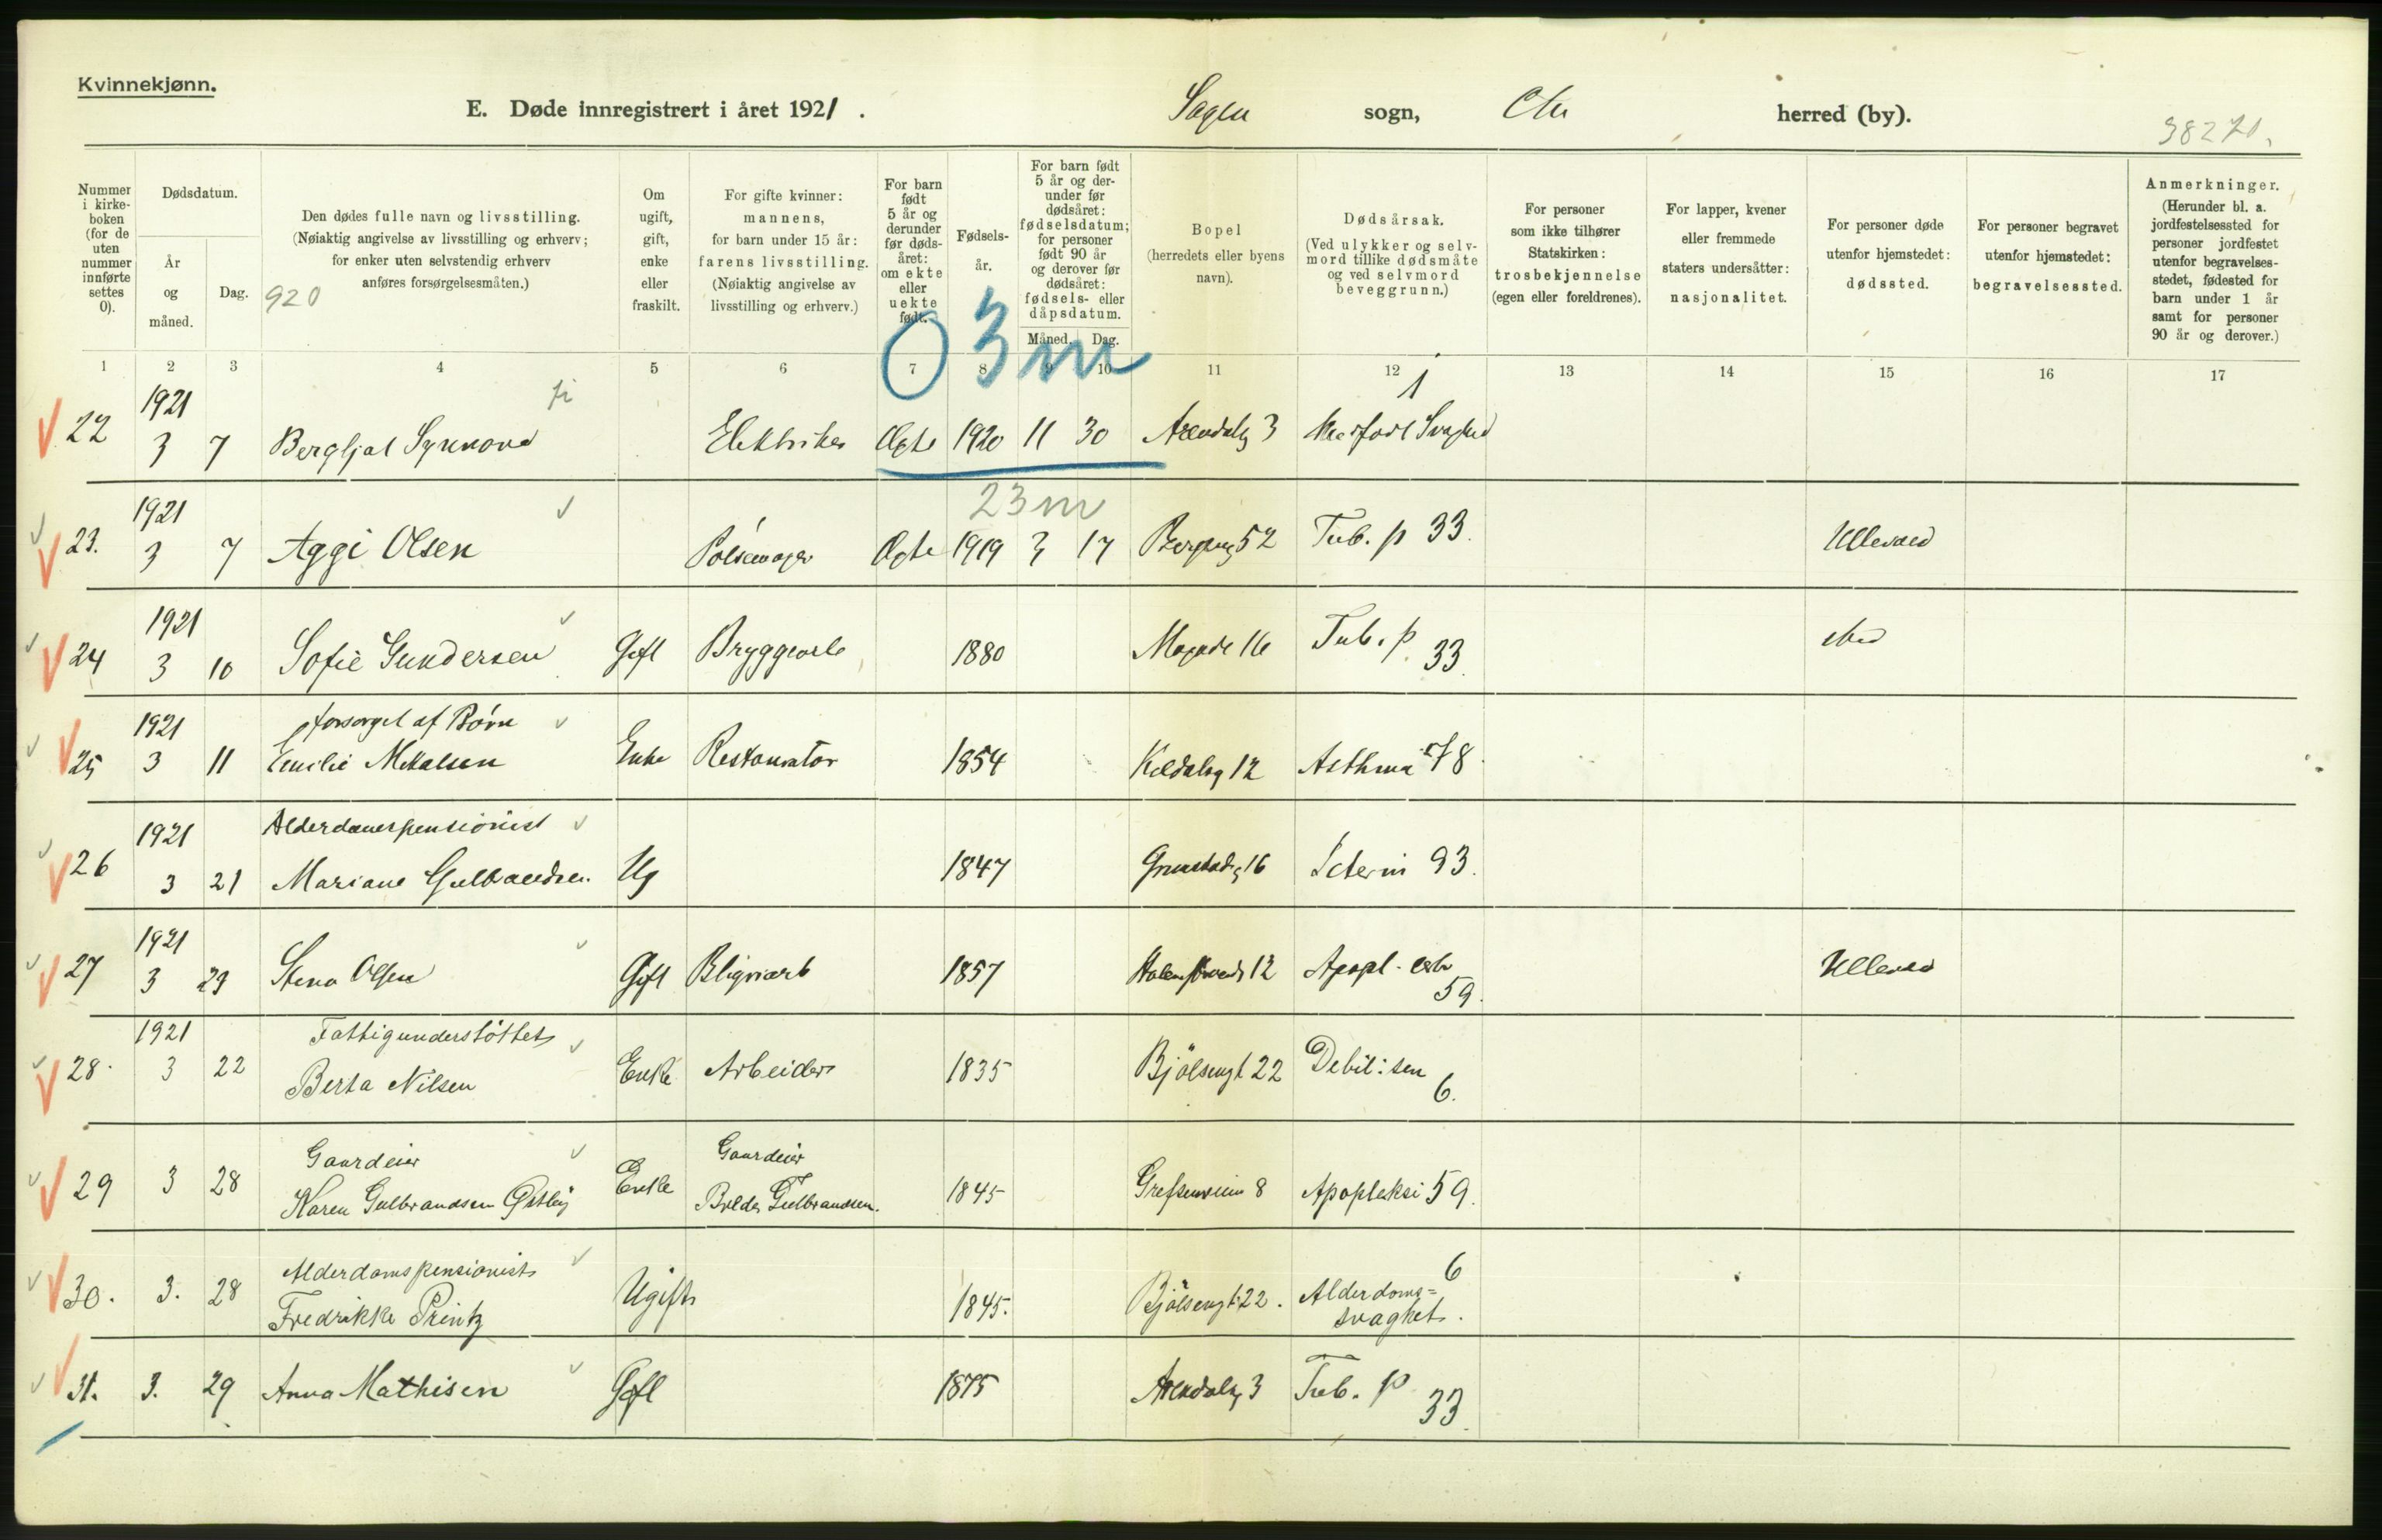 Kvinnekjønn.
E. Døde innregistrert i året 1921. Sagen sogn, herred (by).
38270.
Nummer i kirkeboken (for de uten nummer innførte settes 0).
Dødsdatum.
År og måned.
Dag.
Den dødes fulle navn og livsstilling.
(Nøiaktig angivelse av livsstilling og erhverv;
for enker uten selvstendig erhverv
anføres forsørgelsesmåten.)
920
Om ugift, gift, enke eller fraskilt.
For gifte kvinner:
mannens,
for barn under 15 år:
farens livsstilling.
(Nøiaktig angivelse av
livsstilling og erhverv.)
For barn født 5 år og derunder før dødsåret: om ekte eller uekte født.
Fødselsår.
For barn født 5 år og derunder før dødsåret: fødselsdatum; for personer født 90 år og derover før dødsåret: fødsels- eller dåpsdatum.
Måned. Dag.
Bopel
(herredets eller byens
navn).
Dødsårsak.
(Ved ulykker og selvmord tillike dødsmåte og ved selvmord beveggrunn.)
For personer
som ikke tilhører
Statskirken:
trosbekjennelse
(egen eller foreldrenes).
For lapper, kvener
eller fremmede
staters undersåtter:
nasjonalitet.
For personer døde
utenfor hjemstedet:
dødssted.
For personer begravet
utenfor hjemstedet:
begravelsessted.
Anmerkninger.
(Herunder bl. a.
jordfestelsessted for
personer jordfestet
utenfor begravelses-
stedet, fødested for
barn under 1 år
samt for personer
90 år og derover.)
0 3 m
1 2 3 4 5 6 7 8 9 10 11 12 13 14 15 16 17
1921
22 3 7 Bergljot Synnove Elektriker Ægte 1920 11 30 Arendalsg 3 1
23 m
1921
23. 3 7 Aggi Olsen Pølsemager Ægte 1919 3 17 52 Tub. p 33. Ullevaal
1921
24 3 10 Sofie Gundersen Gift Bryggearb 1880 16 Tub. p. 33. 
1921 forsørget af Børn
25 3 11 Emilie Mikalsen Enke Restauratør 1854 12 Asthma 78.
1921 Alderdomspensionist
26 3 21 Mariane Gulbrandsen Ug 1847 Grimstadg 16 Icterus 93.
1921
27 3 23 Stena Olsen Gift 1857 12 Apopl. cerebr 59. Ullevaal
1921 Fattigunderstöttet
28. 3 22 Berta Nilsen Enke Arbeider 1835 Bjölsengt 22 Debil: sen 6.
Gaardeier Gaardeier
29 3 28 Karen Gulbrandsen Østby Enke Gulbrandsen. 1845 8 Apopleksi 59.
Alderdomspensionist 6
30. 3. 28 Fredrikke Printz Ugift 1845. Bjölsengt 22. Alderdoms=
svaghet.
31. 3. 29 Anna Mathisen Gift 1875 Arendalsg 3 Tub. p 33.